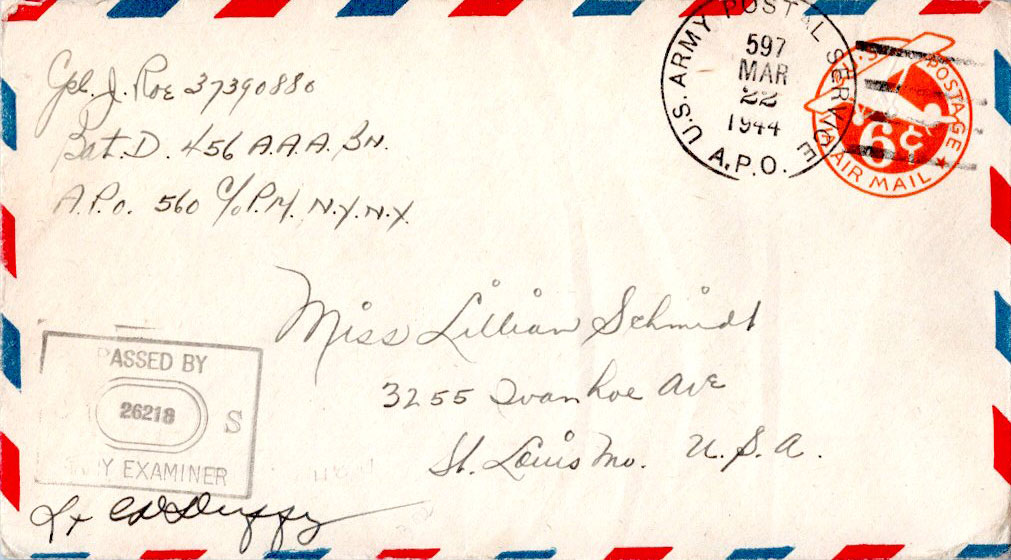 Cpl. J. Roe 37390880
Bat. D. 456 A.A.A. Bn.
A.P.O. 560 c/o P.M. N.Y. N.Y.
U.S. ARMY POSTAL SERVICE
597
MAR
22
1944
A.P.O.
U.S. POSTAGE
6¢
VIA AIR MAIL
Miss Lillian Schmidt
3255 Ivanhoe Ave
St. Louis Mo. U.S.A.
PASSED BY
26218 S
EXAMINER
Lt Duffy